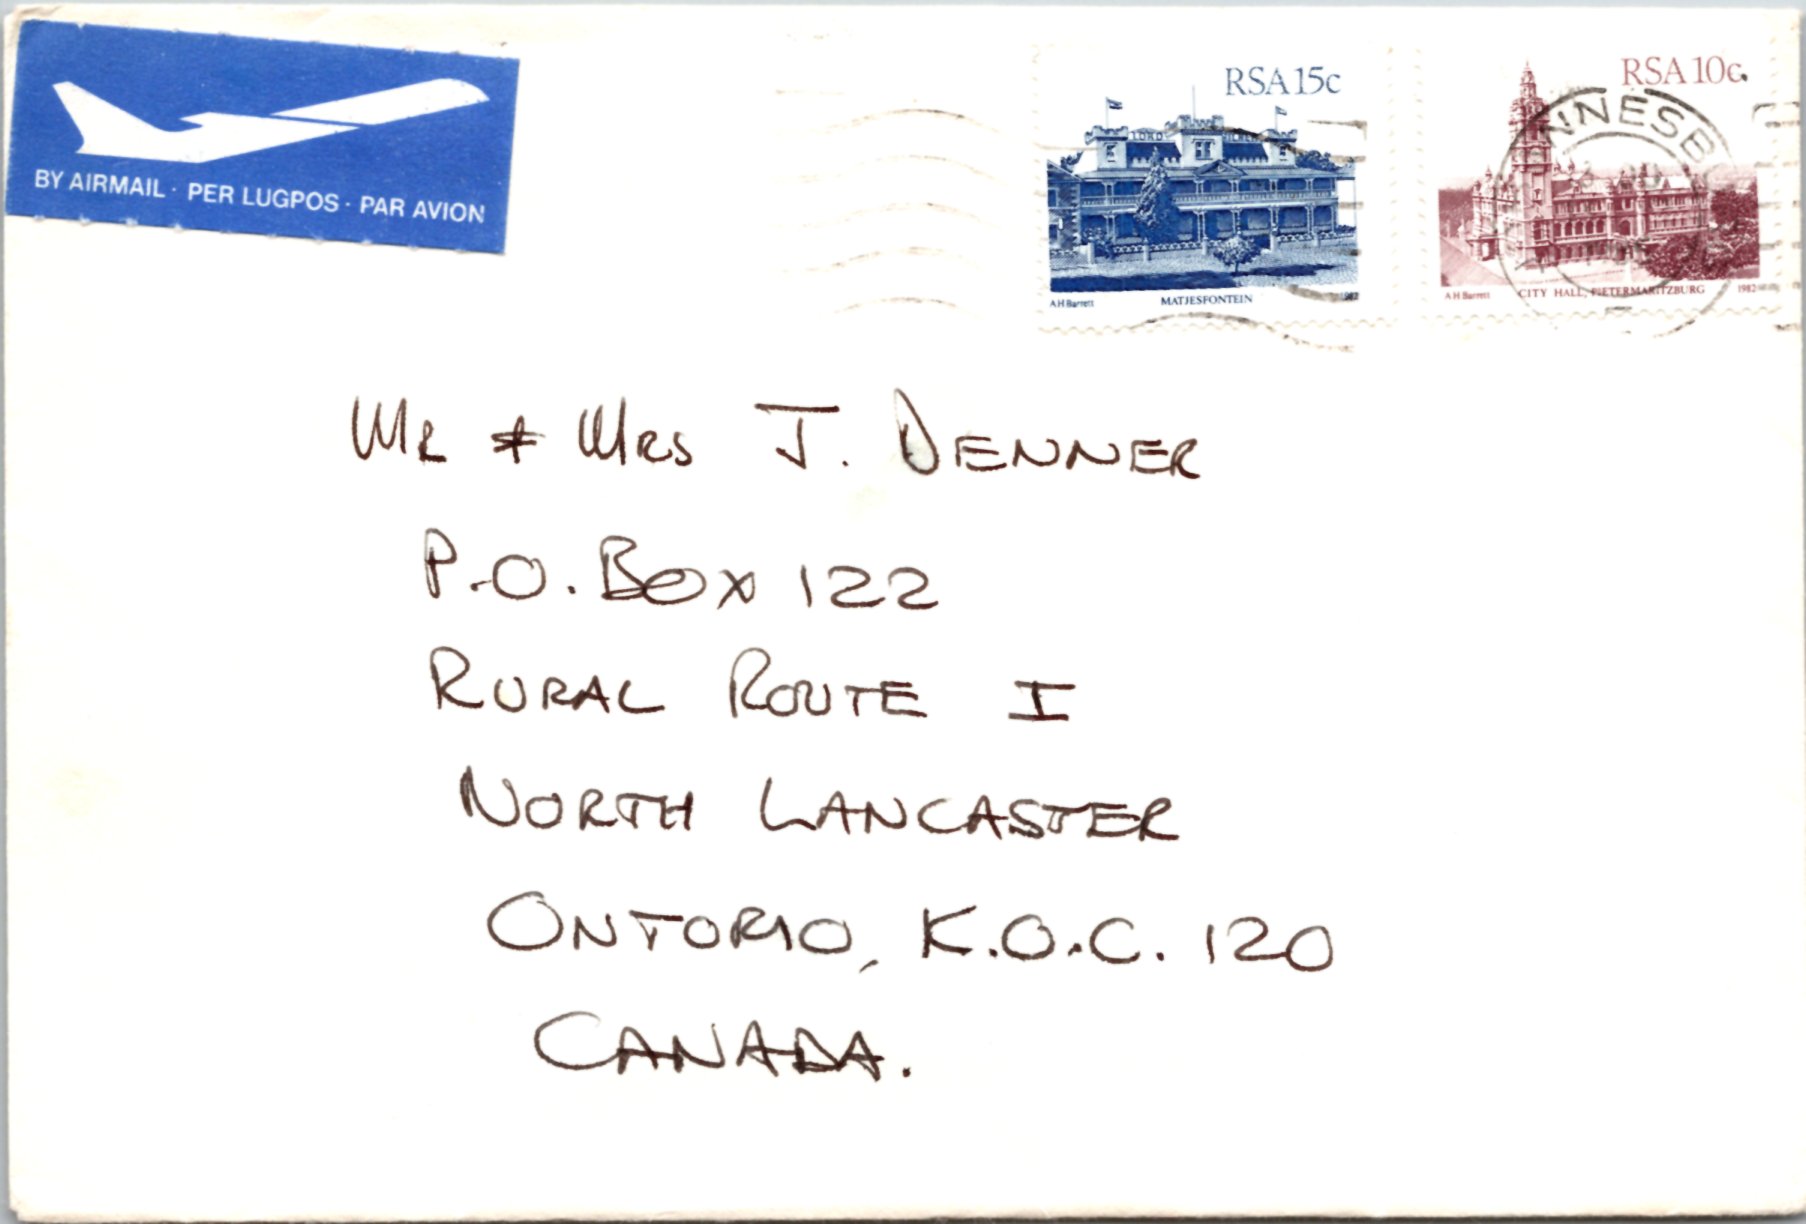 BY AIRMAIL · PER LUGPOS · PAR AVION
RSA 15c
LORD
A H Barrett
MATJESFONTEIN
1982
RSA 10c
NNESB
A H Barrett
CITY HALL, PIETERMARITZBURG
1982
MR & MRS J. DENNER
P.O. BOX 122
RURAL ROUTE I
NORTH LANCASTER
ONTORIO, K.O.C. 120
CANADA.